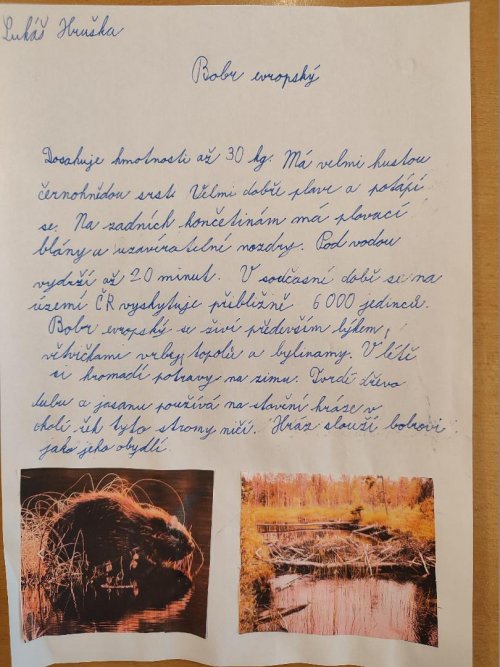 Lukáš Hruška
Bobr evropský
Dosahuje hmotnosti až 30 kg. Má velmi hustou
černohnědou srst. Velmi dobře plave a potápí
se. Na zadních končetinám má plovací
blány a uzavíratelní nozdry. Pod vodou
vydrží až 20 minut. V současní době se na
území ČR vyskytuje přibližně 6 000 jedinců.
Bobr evropský se živí především lýkem,
větvičkami vrby, topolů a bylinamy. V létě
si hromadí potravy na zimu. Tvrdé dřevo
dubu a jasanu používá na stavění hráze v
okolí řek tyto stromy ničí. Hráz slouží bobrovi
jako jeho obydlí.